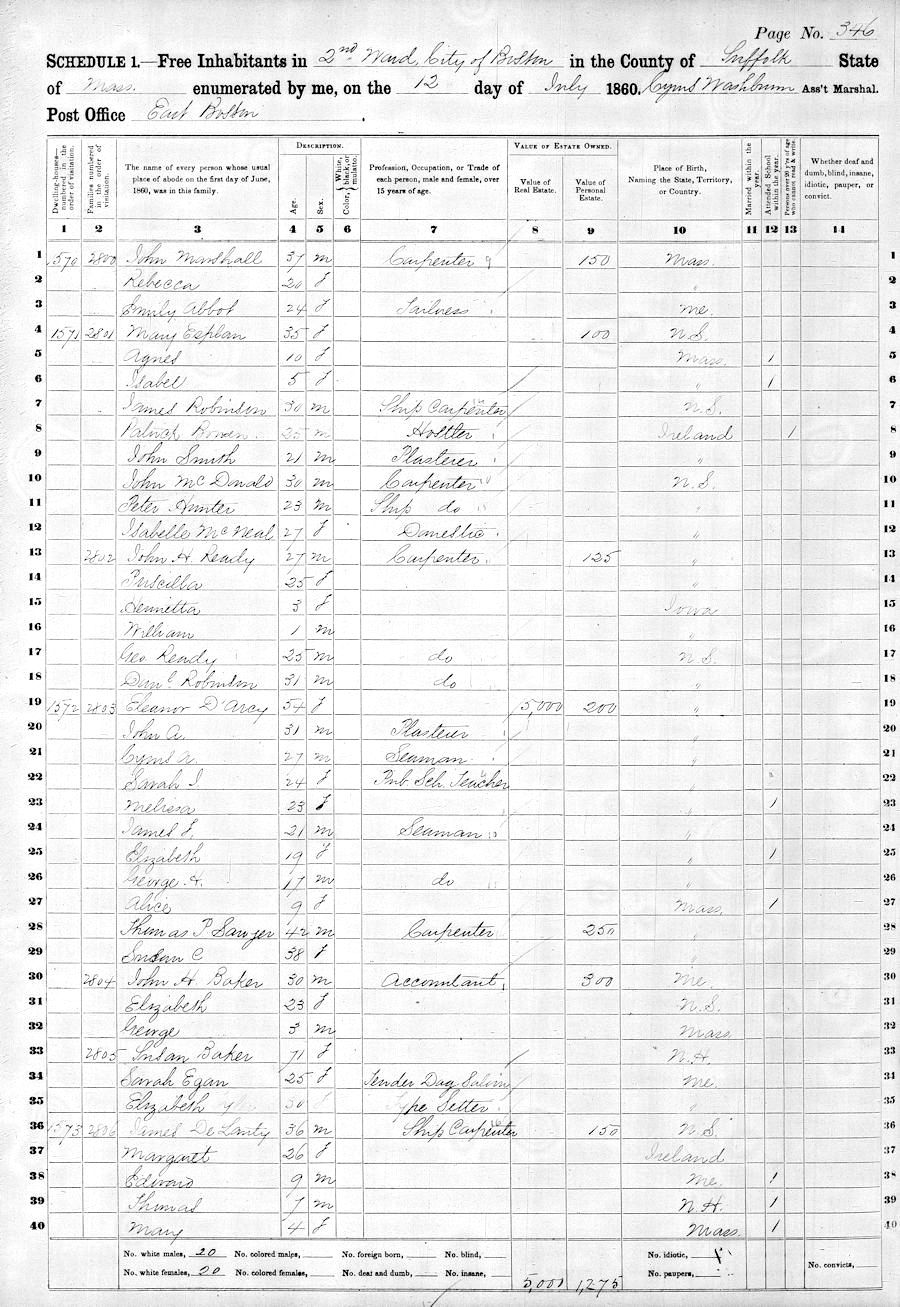 Page No. 346
SCHEDULE 1.—Free Inhabitants in 2nd Ward, City of Boston in the County of Suffolk State
of Mass. enumerated by me, on the 12 day of July 1860. Cyrus Washburn Ass't Marshal.
Post Office East Boston.
Dwelling-houses—numbered in the order of visitation.
Families numbered in the order of visitation.
The name of every person whose usual place of abode on the first day of June, 1860, was in this family.
DESCRIPTION.
Age.
Sex.
Color, White, black, or mulatto.
Profession, Occupation, or Trade of each person, male and female, over 15 years of age.
VALUE OF ESTATE OWNED.
Value of Real Estate.
Value of Personal Estate.
Place of Birth, Naming the State, Territory, or Country.
Married within the year.
Attended School within the year.
Persons over 20 y'rs of age who cannot read & write.
Whether deaf and dumb, blind, insane, idiotic, pauper, or convict.
1 2 3 4 5 6 7 8 9 10 11 12 13 14
1 1570 2800 John Marshall 37 m Carpenter 150 Mass. 1
2 Rebecca 20 f " 2
3 Emily Abbot 24 f Tailoress Me. 3
4 1571 2801 Mary 35 f 100 N.S. 4
5 Agnes 10 f Mass. 1 5
6 Isabel 5 f " 1 6
7 James Robinson 30 m Ship Carpenter N.S. 7
8 Patrick Bowen 25 m Hostler Ireland 1 8
9 John Smith 21 m Plasterer " 9
10 John McDonald 30 m Carpenter N.S. 10
11 Peter Hunter 23 m Ship do " 11
12 Isabelle McNeal 27 f Domestic " 12
13 2802 John H. Ready 27 m Carpenter 125 " 13
14 Priscilla 25 f " 14
15 Henrietta 3 f Iowa 15
16 William 1 m " 16
17 Geo. Ready 25 m do N.S. 17
18 Danl. Robinson 31 m do " 18
19 1572 2803 Eleanor D'Arcy 54 f 5,000 200 " 19
20 John A. 31 m Plasterer " 20
21 Cyrus A. 27 m Seaman " 21
22 Sarah I 24 f Pub. Sch. Teacher " 22
23 Melissa 23 f " 1 23
24 James F. 21 m Seaman " 24
25 Elizabeth 19 f " 1 25
26 George H. 17 m do " 26
27 Alice 9 f Mass. 1 27
28 Thomas P Sawyer 42 m Carpenter 250 " 28
29 Susan C 38 f " 29
30 2804 John H. Baker 30 m Accountant 300 Me. 30
31 Elizabeth 23 f N.S. 31
32 George 3 m Mass. 32
33 2805 Susan Baker 71 f N.H. 33
34 Sarah Egan 25 f Tender Dag Saloon Me. 34
35 Elizabeth 50 f Type Setter " 35
36 1573 2806 James DeLanty 36 m Ship Carpenter 150 N.S. 36
37 Margaret 26 f Ireland 37
38 Edward 9 m Me. 1 38
39 Thomas 7 m N.H. 1 39
40 Mary 4 f Mass. 1 40
No. white males, 20 No. colored males, No. foreign born, No. blind, No. idiotic,
No. white females, 20 No. colored females, No. deaf and dumb, No. insane, 5,000 1,275 No. paupers, No. convicts,